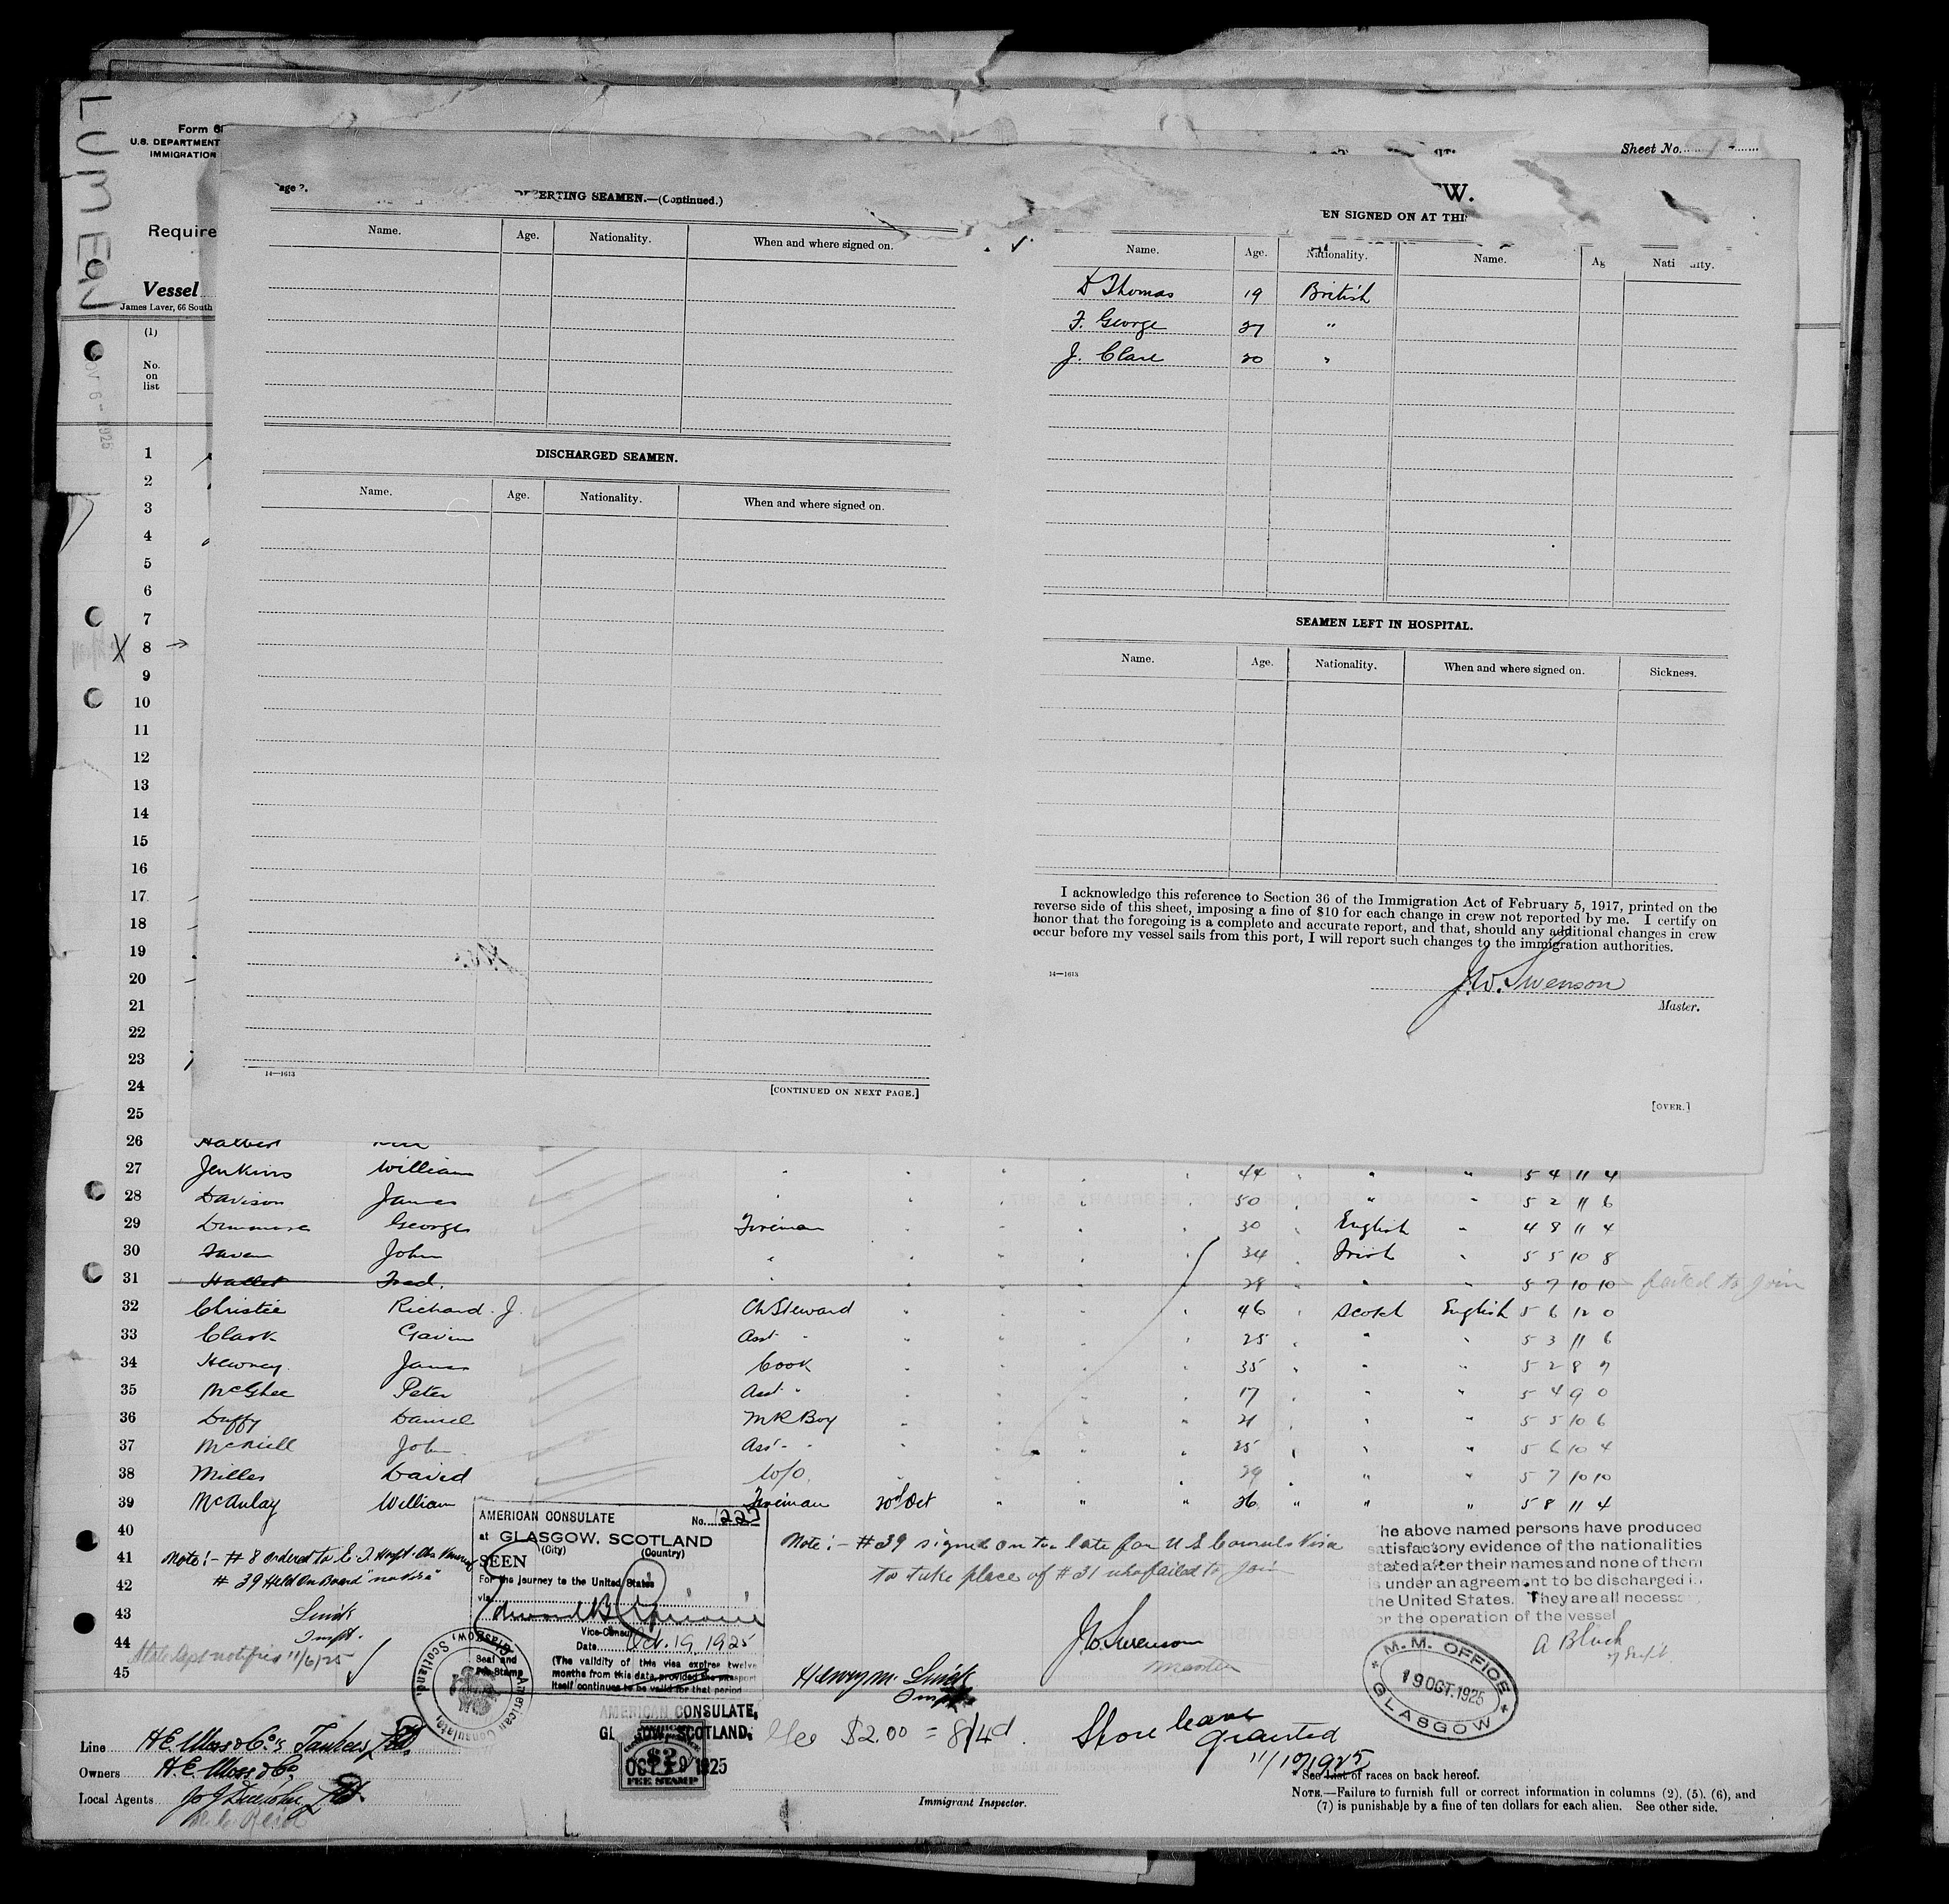 LUMEN
Form 6
U.S. DEPARTMENT
IMMIGRATION
Sheet No.
Require
Vessel
James Laver, 66 South
(1)
No.
on
list
NOV 6 - 1925
age 2.
ERTING SEAMEN.—(Continued.)
Name. Age. Nationality. When and where signed on.
DISCHARGED SEAMEN.
Name. Age. Nationality. When and where signed on.
14—1613
[CONTINUED ON NEXT PAGE.]
W.
EN SIGNED ON AT THI
Name. Age. Nationality. Name. Ag Nati ity.
D Thomas 19 British
F. George 27 "
J. Clare 20 "
SEAMEN LEFT IN HOSPITAL.
Name. Age. Nationality. When and where signed on. Sickness.
I acknowledge this reference to Section 36 of the Immigration Act of February 5, 1917, printed on the
reverse side of this sheet, imposing a fine of $10 for each change in crew not reported by me. I certify on
honor that the foregoing is a complete and accurate report, and that, should any additional changes in crew
occur before my vessel sails from this port, I will report such changes to the immigration authorities.
14—1613
J.W. Swenson
Master.
[OVER.]
1
2
3
4
5
6
7
X 8 →
9
10
11
12
13
14
15
16
17
18
19
20
21
22
23
24
25
26
27 Jenkins William " 44 " " 5 4 11 4
28 Davison James " 50 " " 5 2 11 6
29 George Fireman 30 " English " 4 8 11 4
30 John " 34 " Irish " 5 5 10 8
31 Hallet Fred. " 28 " " 5 7 10 10 failed to join
32 Christie Richard. J. Ch Steward " 46 " Scotch English 5 6 12 0
33 Clark Gavin Asst " 25 " " 5 3 11 6
34 James Cook 35 " " 5 2 8 7
35 McGhee Peter Asst " 17 " " 5 4 9 0
36 Duffy Daniel M R Boy 21 " " 5 5 10 6
37 McNeill John Ass " 25 " " 5 6 10 4
38 Miller David W/O. 29 " " 5 7 10 10
39 McAulay William Fireman 20th Oct " " " 26 " " " 5 8 11 4
40
41 Note:- # 8 ordered to
42 # 39 Held On Board "no visa"
43 Linick
44 Inspt.
45 State Dept notified 11/6/25
AMERICAN CONSULATE No. 227
at GLASGOW, SCOTLAND
(City) (Country)
SEEN
For the journey to the United States
via
Vice-Consul
Date Oct. 19, 1925
Seal and
Fee Stamp
(The validity of this visa expires twelve
months from this data, provided the passport
itself continues to be valid for that period
American Consulate, Glasgow, Scotland.
Note:- #39 signed on too late for U S Consuls Visa
to take place of #31 who failed to join
J.W. Swenson
Master
Henry M. Linick
he above named persons have produced
satisfactory evidence of the nationalities
stated after their names and none of them
is under an agreement to be discharged i
the United States. They are all necess
or the operation of the vessel
A Black
M. M. OFFICE
19 OCT. 1925
GLASGOW
AMERICAN CONSULATE,
GL OW, SCOTLAND.
$2
OCT 19 1925
FEE STAMP
Fee $2.00 = 8/4d.
Shore leave
granted
11/10/1925
Line H E Moss & Co's Tankers Ltd.
Owners H. E. Moss & Co.
Local Agents
Immigrant Inspector.
See List of races on back hereof.
NOTE.—Failure to furnish full or correct information in columns (2), (5), (6), and
(7) is punishable by a fine of ten dollars for each alien. See other side.